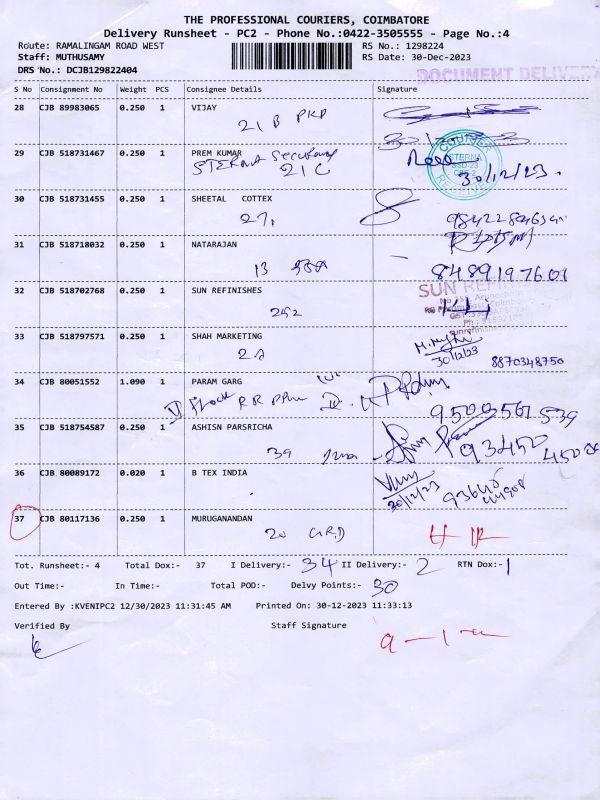 THE PROFESSIONAL COURIERS, COIMBATORE
Delivery Runsheet - PC2 - Phone No.:0422-3505555 - Page No.:4
Route: RAMALINGAM ROAD WEST RS No.: 1298224
Staff: MUTHUSAMY RS Date: 30-Dec-2023
DRS No.: DCJB129822404
DOCUMENT DELIVERY
S No Consignment No Weight PCS Consignee Details Signature
28 CJB 89983065 0.250 1 VIJAY
21 B PKP
29 CJB 518731467 0.250 1 PREM KUMAR
21 C
COURIER
RECEIVED
30/12/23.
30 CJB 518731455 0.250 1 SHEETAL COTTEX
27,
31 CJB 518718032 0.250 1 NATARAJAN
13
8489197601
32 CJB 518702768 0.250 1 SUN REFINISHES
252
SUN REFINISHES
33 CJB 518797571 0.250 1 SHAH MARKETING
22
30/12/23 8870348750
34 CJB 80051552 1.090 1 PARAM GARG
9500561539
35 CJB 518754587 0.250 1 ASHISN PARSRICHA
39
93450
36 CJB 80089172 0.020 1 B TEX INDIA
30/12/23
37 CJB 80117136 0.250 1 MURUGANANDAN
20
Tot. Runsheet:- 4 Total Dox:- 37 I Delivery:- 34 II Delivery:- 2 RTN Dox:- 1
Out Time:- In Time:- Total POD:- Delvy Points:- 30
Entered By :KVENIPC2 12/30/2023 11:31:45 AM Printed On: 30-12-2023 11:33:13
Verified By Staff Signature